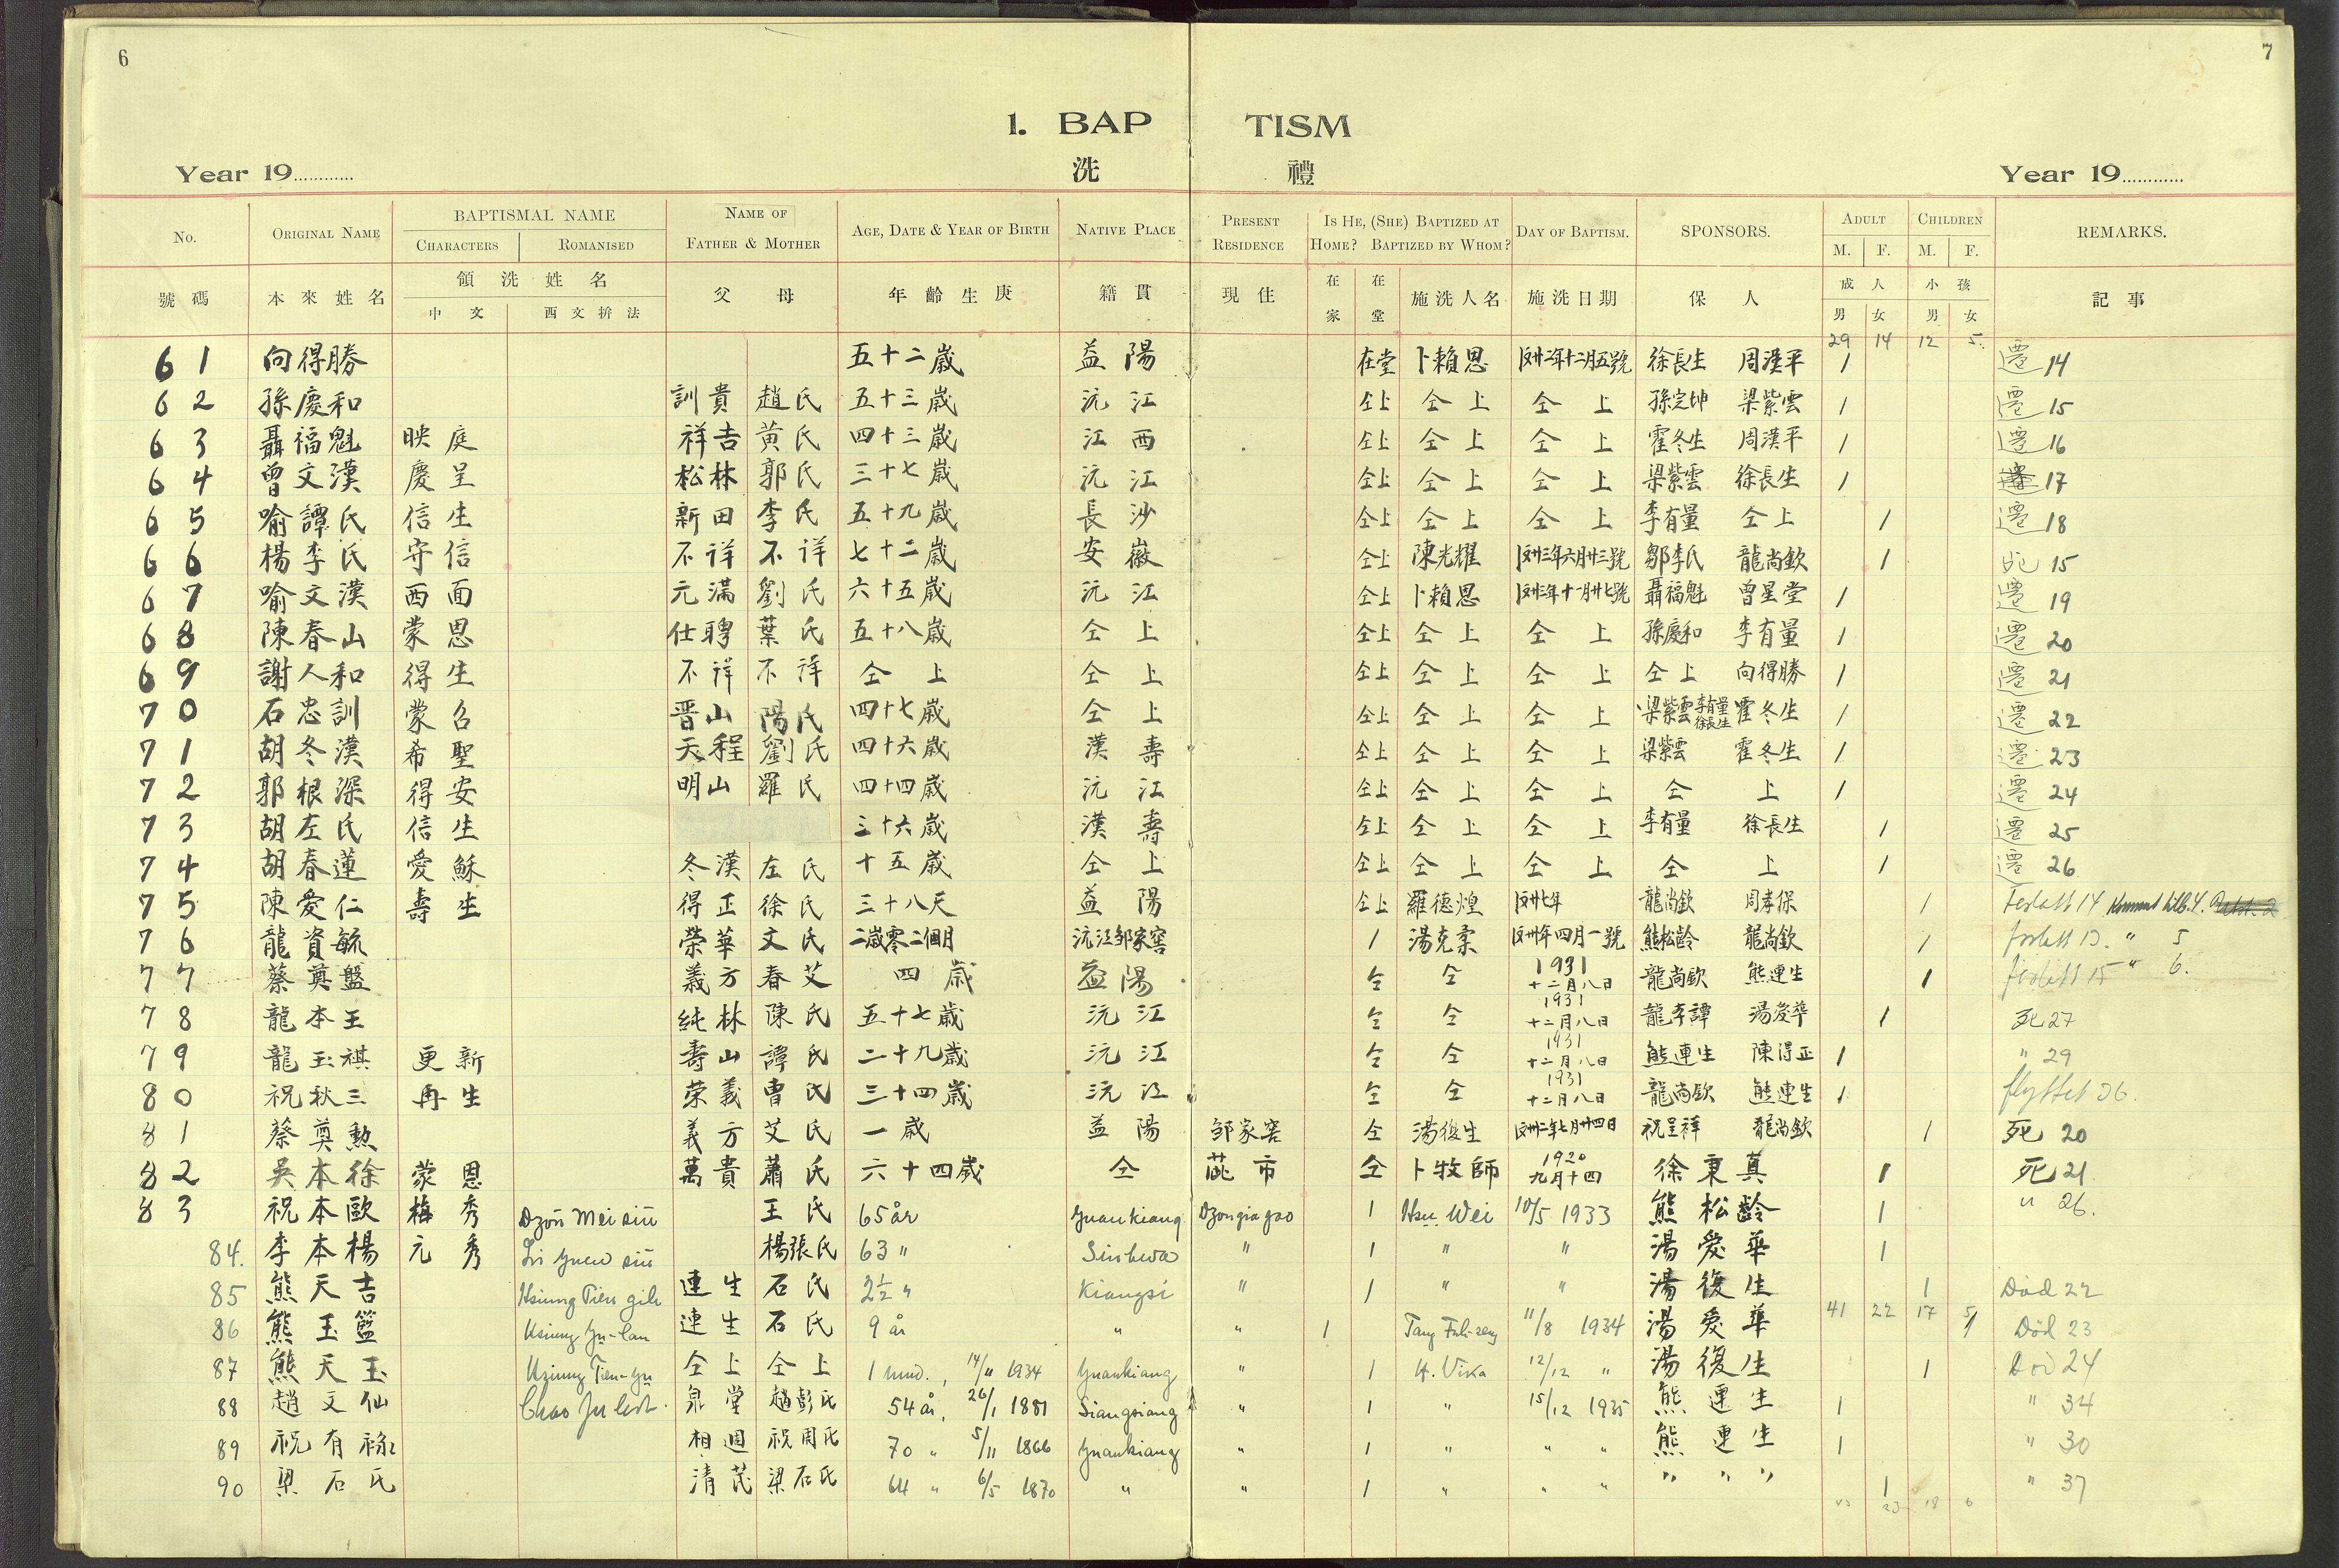 6
7
1. BAP TISM
洗 禮
Year 19............
Year 19............
No. ORIGINAL NAME BAPTISMAL NAME NAME OF FATHER & MOTHER AGE, DATE & YEAR OF BIRTH NATIVE PLACE PRESENT RESIDENCE IS HE, (SHE) BAPTIZED AT HOME? BAPTIZED BY WHOM? DAY OF BAPTISM. SPONSORS. ADULT CHILDREN REMARKS.
CHARACTERS ROMANISED M. F. M. F.
號碼 本來姓名 領洗姓名 父母 年齡生庚 籍貫 現住 在家 在堂 施洗人名 施洗日期 保人 成人 小孩 記事
中文 西文拚法 男 女 男 女
29 14 12 5.
61 向得勝 五十二歲 益陽 在堂 卜賴恩 徐長生 周漢平 1 遷 14
62 孫慶和 訓貴 趙氏 五十三歲 沅江 仝上 仝上 仝上 孫定坤 梁紫雲 1 遷 15
63 聶福魁 映庭 祥吉 黃氏 四十三歲 江西 仝上 仝上 仝上 霍冬生 周漢平 1 遷 16
64 曾文漢 慶呈 松林 郭氏 三十七歲 沅江 仝上 仝上 仝上 梁紫雲 徐長生 1 17
65 喻譚氏 信生 新田 李氏 五十九歲 長沙 仝上 仝上 仝上 李有量 仝上 1 遷 18
66 楊李氏 守信 不祥 不祥 七十二歲 安徽 仝上 陳光耀 鄒李氏 龍尚欽 1 死 15
67 喻文漢 西面 元滿 劉氏 六十五歲 沅江 仝上 卜賴恩 聶福魁 曾星堂 1 遷 19
68 陳春山 蒙恩 仕聘 葉氏 五十八歲 仝上 仝上 仝上 仝上 孫慶和 李有量 1 遷 20
69 謝人和 得生 不祥 不祥 仝上 仝上 仝上 仝上 仝上 仝上 向得勝 1 遷 21
70 石忠訓 蒙召 晋山 陽氏 四十七歲 仝上 仝上 仝上 仝上 梁紫雲 李有量 徐長生 霍冬生 1 遷 22
71 胡冬漢 希聖 天程 劉氏 四十六歲 漢壽 仝上 仝上 仝上 梁紫雲 霍冬生 1 遷 23
72 郭根深 得安 明山 羅氏 四十四歲 沅江 仝上 仝上 仝上 仝上 1 遷 24
73 胡左氏 信生 三十六歲 漢壽 仝上 仝上 仝上 李有量 徐長生 1 遷 25
74 胡春蓮 愛穌 冬漢 左氏 十五歲 仝上 仝上 仝上 仝上 仝上 1 遷 26
75 陳愛仁 壽生 得正 徐氏 三十八天 益陽 仝上 羅德煌 龍尚欽 周孝保 1 14
76 龍資毓 榮華 文氏 二歲零二個月 沅江鄒家窖 1 湯克柔 熊松齡 龍尚欽 1 13. " 5
77 蔡奠盤 義方 春艾 四歲 益陽 仝 仝 1931 十二月八日 龍尚欽 熊連生 1 15 " 6.
78 龍本王 純林 陳氏 五十七歲 沅江 仝 仝 1931 十二月八日 龍李譚 湯愛華 1 死 27
79 龍玉祺 更新 壽山 譚氏 二十九歲 沅江 仝 仝 1931 十二月八日 熊連生 陳得正 1 " 29
80 祝秋三 再生 荣義 曹氏 三十四歲 沅江 仝 仝 1931 十二月八日 龍尚欽 熊連生 1 flyttet 26.
81 蔡奠勲 義方 艾氏 一歲 益陽 邹家窖 仝 湯復生 祝呈祥 龍尚欽 1 死 20
82 吳本徐 蒙恩 萬貴 蕭氏 六十四歲 仝 茈市 仝 卜牧師 1920 九月十四 徐秉真 1 死 21
83 祝本歐 梅秀 Dzou Mei siu 王氏 65 år Yuankiang Dzongiagao 1 Hsu Wei 10/5 1933 熊松齡 1 " 26.
84. 李本楊 元秀 Li Yuen siu 楊張氏 63 " Sinhwa " 1 " " 湯愛華 1
85 熊天吉 Hsiung Tien gih 連生 石氏 2½ " Kiangsi " 1 " " 湯復生 1 Död 22
86 熊玉籃 Hsiung Yu-lan 連生 石氏 9 år " " 1 Tang Fuh-seng 11/8 1934 湯愛華 41 22 17 5 1 Död 23
87 熊天玉 Hsiung Tien-yu 仝上 仝上 1 mnd., 14/11 1934 Yuankiang " 1 H. Vika 12/12 " 湯復生 1 Död 24
88 趙文仙 泉堂 趙彭氏 54 år, 26/1 1881 Siangsiang " 1 " 15/12 1935 熊連生 1 " 34
89 祝有祿 相週 祝周氏 70 " 5/11 1866 Yuankiang " 1 " " " 熊連生 1 " 30
90 梁石氏 清茂 梁石氏 64 " 6/5 1870 " " 1 " " " " " " 1 " 37
23 18 6